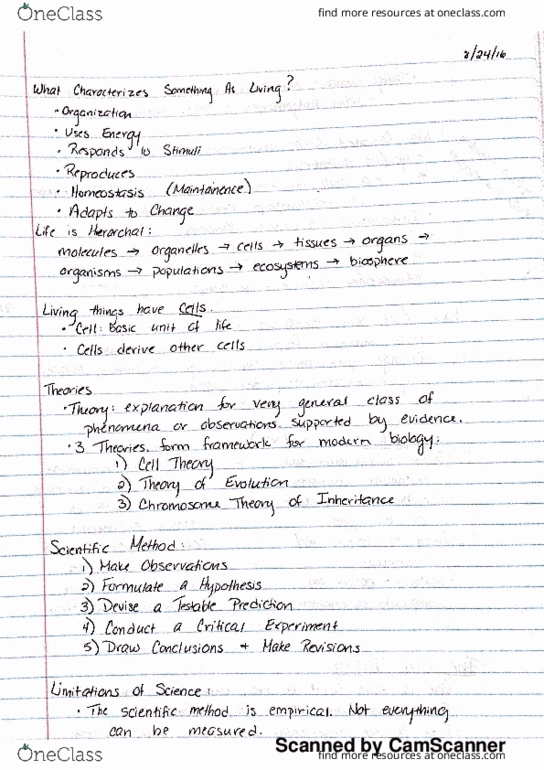 OneClass
find more resources at oneclass.com
8/24/16
What Characterizes Something As Living?
• Organization
• Uses Energy
• Responds to Stimuli
• Reproduces
• Homeostasis (Maintainence)
• Adapts to Change
Life is Hierarchal:
molecules → organelles → cells → tissues → organs →
organisms → populations → ecosystems → biosphere
Living things have Cells.
• Cell: Basic unit of life
• Cells derive other cells
Theories
• Theory: explanation for very general class of
phenomena or observations supported by evidence.
• 3 Theories form framework for modern biology:
1) Cell Theory
2) Theory of Evolution
3) Chromosome Theory of Inheritance
Scientific Method:
1) Make Observations
2) Formulate a Hypothesis
3) Devise a Testable Prediction
4) Conduct a Critical Experiment
5) Draw Conclusions + Make Revisions
Limitations of Science:
• The scientific method is empirical. Not everything
can be measured.
Scanned by CamScanner
OneClass
find more resources at oneclass.com